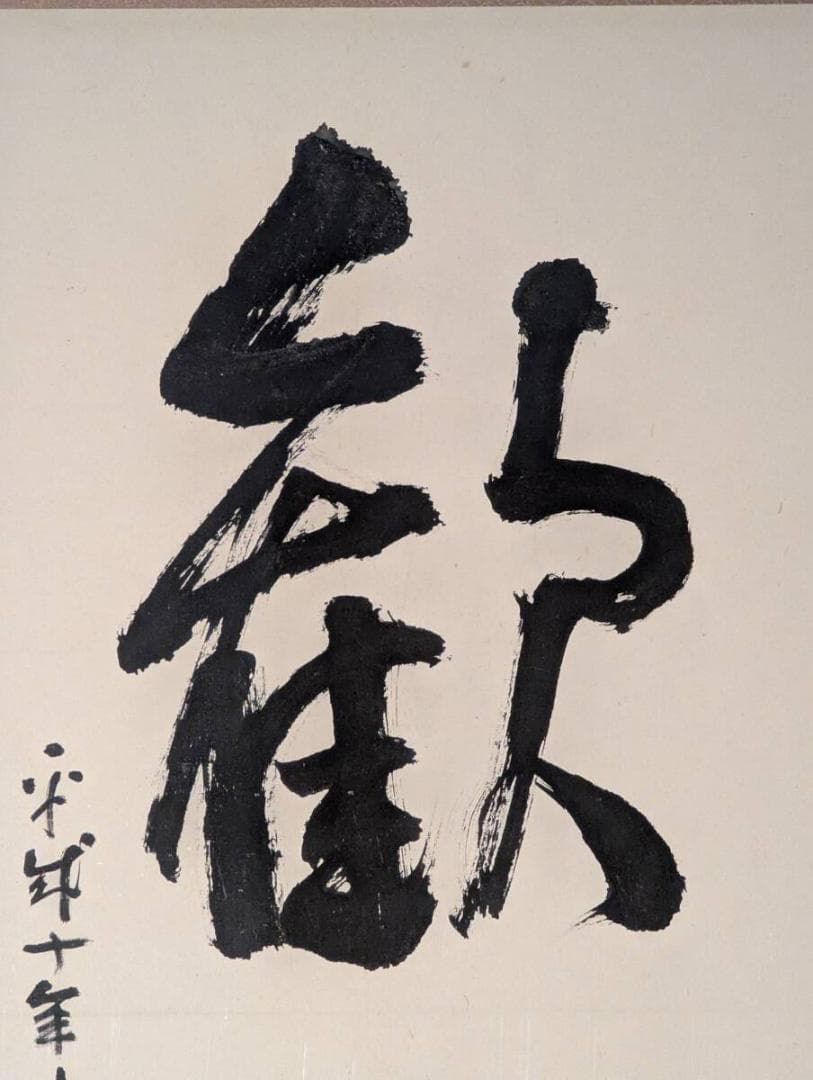 歓
平成十年